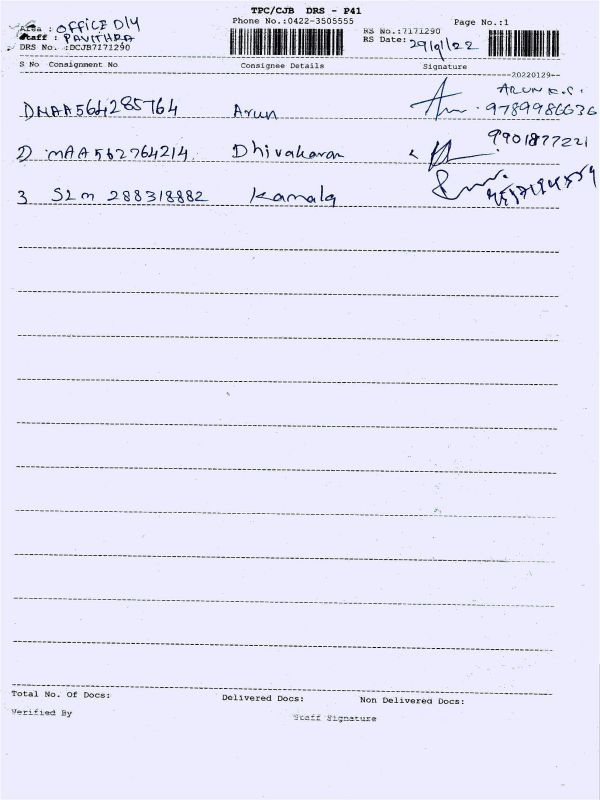 TPC/CJB DRS - P41
Area : OFFICE DIY Phone No.:0422-3505555 Page No.:1
Staff : PAVITHRA RS No.:7171290
DRS No. :DCJB7171290 RS Date: 29/1/22
S No Consignment No Consignee Details Signature
--20220129--
1) MAA564285764 Arun ARUN K.S. 9789986636
2) MAA562764214 Dhivakaran 9901877221
3 SLM 288318882 Kamala
Total No. Of Docs: Delivered Docs: Non Delivered Docs:
Verified By Staff Signature